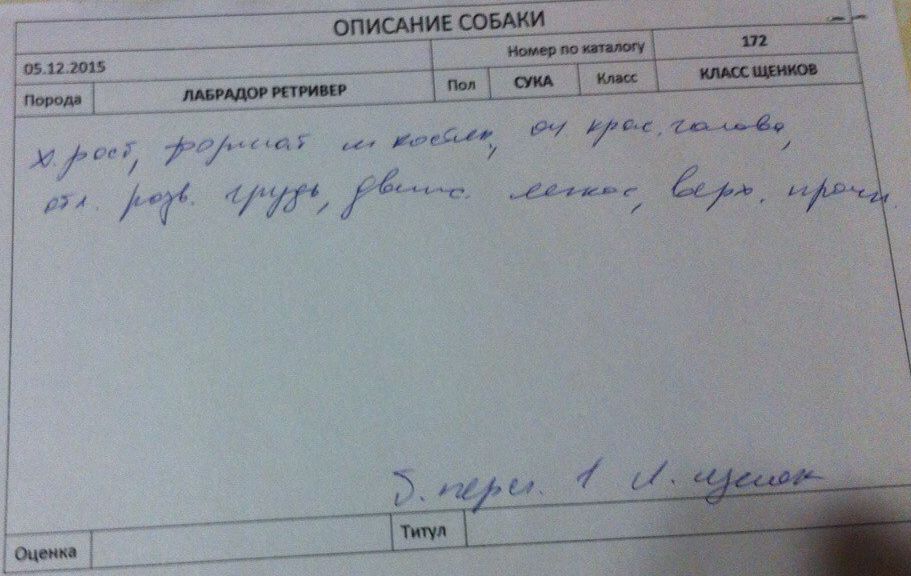 ОПИСАНИЕ СОБАКИ
05.12.2015 Номер по каталогу 172
Порода ЛАБРАДОР РЕТРИВЕР Пол СУКА Класс КЛАСС ЩЕНКОВ
х. рост, формат и костяк, оч крас. голова,
отл. разв. грудь, движ. легкие, верх. прочн.
б. перс. 1 Л. щенок
Оценка Титул